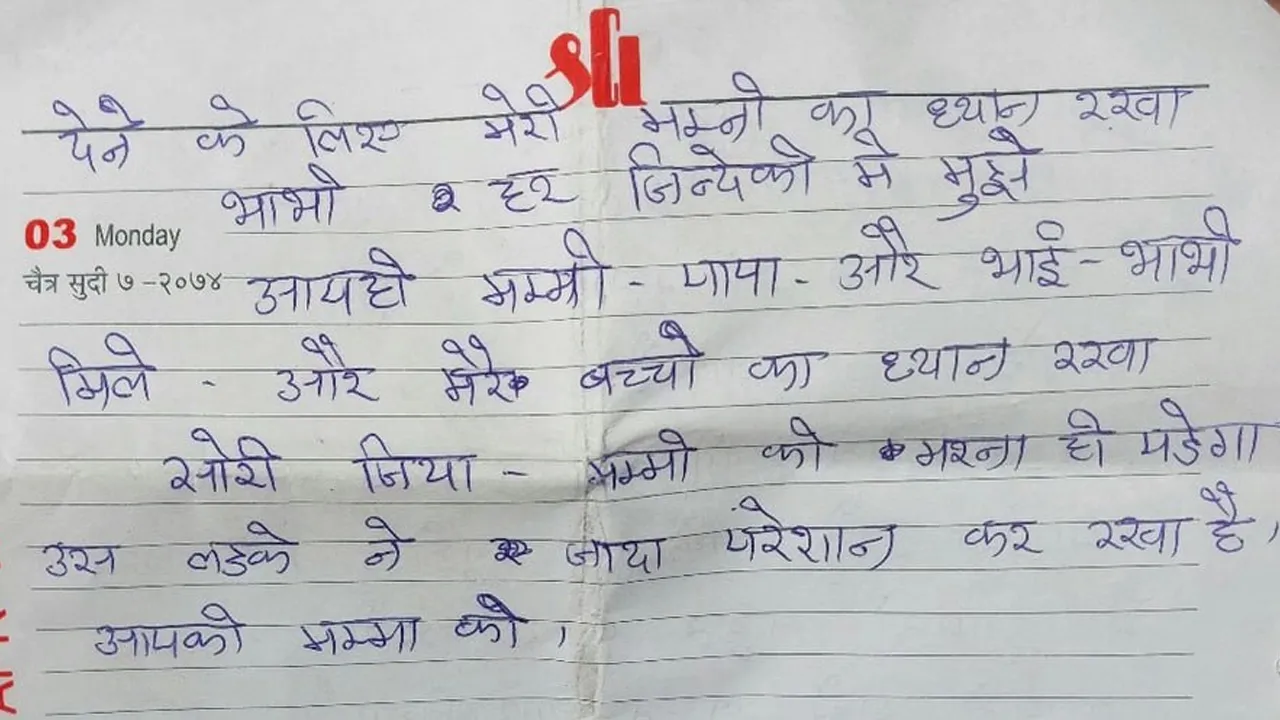 SCI
देने के लिए मेरी मम्मी का ध्यान रखा
भाभी हर जिन्देकी मे मुझे
03 Monday
चैत्र सुदी ७ -२०७४
आपही मम्मी - पापा - और भाई - भाभी
मिले - और मेरे बच्चो का ध्यान रखा
सोरी जिया - मम्मी को मरना ही पडेगा
उस लडके ने जादा परेशान कर रखा है,
आपकी मम्मा को,